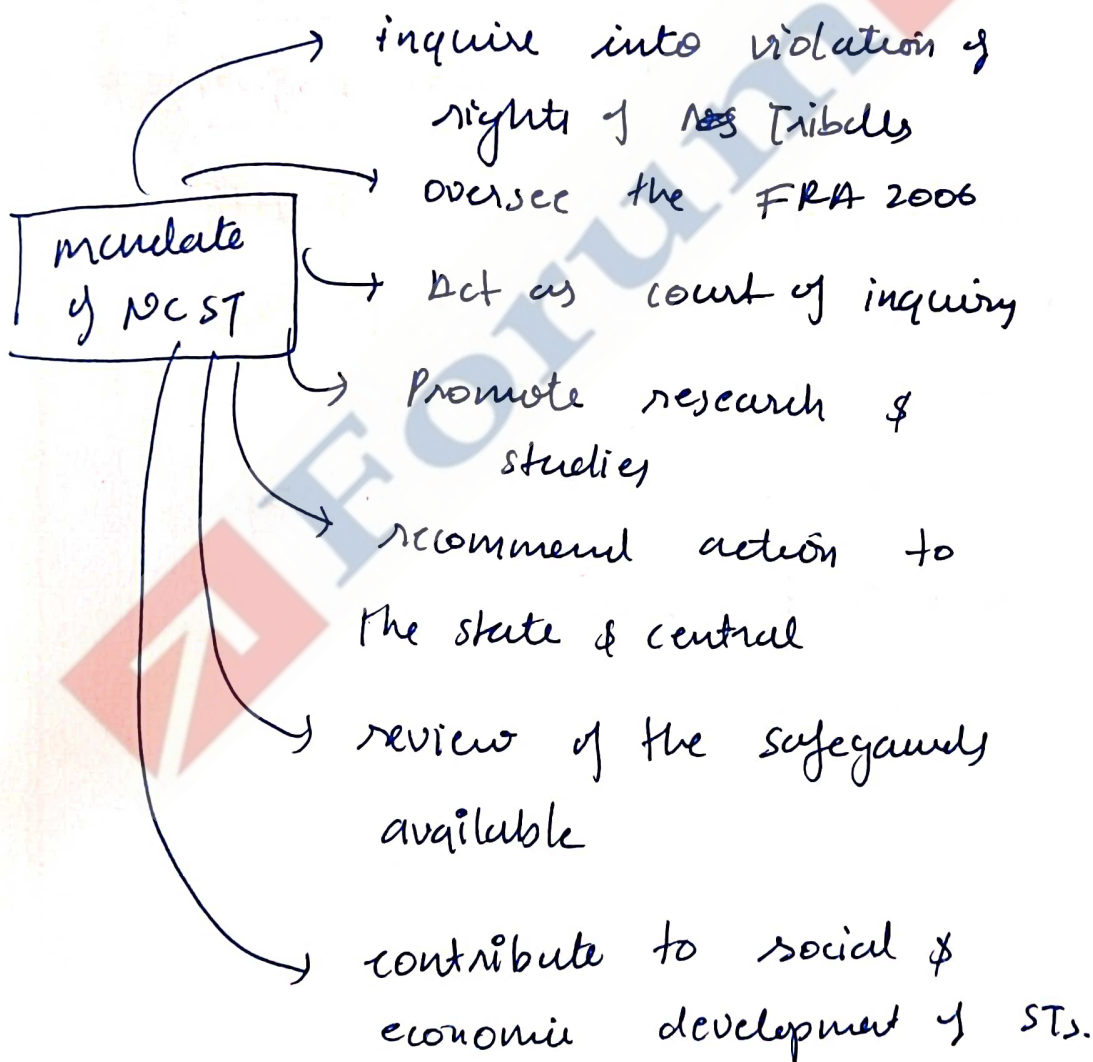 inquire into violation of
rights of Tribells
oversee the FRA 2006
mandate
of NCST
Act as court of inquiry
Promote research &
studies
recommend action to
the state & central
review of the safegaurds
available
contribute to social &
economic development of STs.
Forum